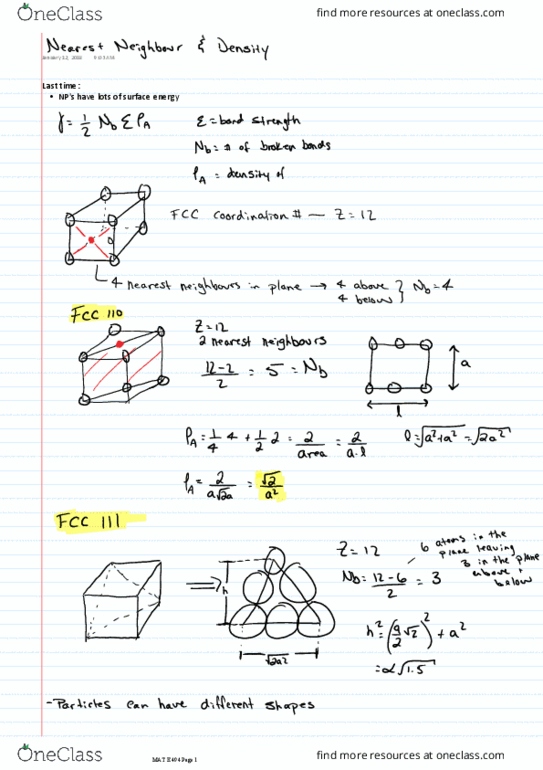 OneClass find more resources at oneclass.com
Nearest Neighbour & Density
Last time :
• NP's have lots of surface energy
γ = 1/2 N_b Σ ρ_A
Σ = bond strength
N_b = # of broken bonds
ρ_A = density of
FCC coordination # — Z = 12
4 nearest neighbours in plane → 4 above
4 below } N_b = 4
FCC 110
Z = 12
2 nearest neighbours
(12-2)/2 = 5 = N_b
a
l
ρ_A = 1/4 4 + 1/2 2 = 2/area = 2/(a·l)
l = √(a²+a²) = √(2a²)
ρ_A = 2/(a√2a) = √2/a²
FCC 111
Z = 12
6 atoms in the
plane leaving
3 in the plane
above +
below
N_b = (12-6)/2 = 3
h
√(2a²)
h² = (a/2 √2)² + a²
= a√1.5
- Particles can have different shapes
OneClass MAT E494 Page 1 find more resources at oneclass.com